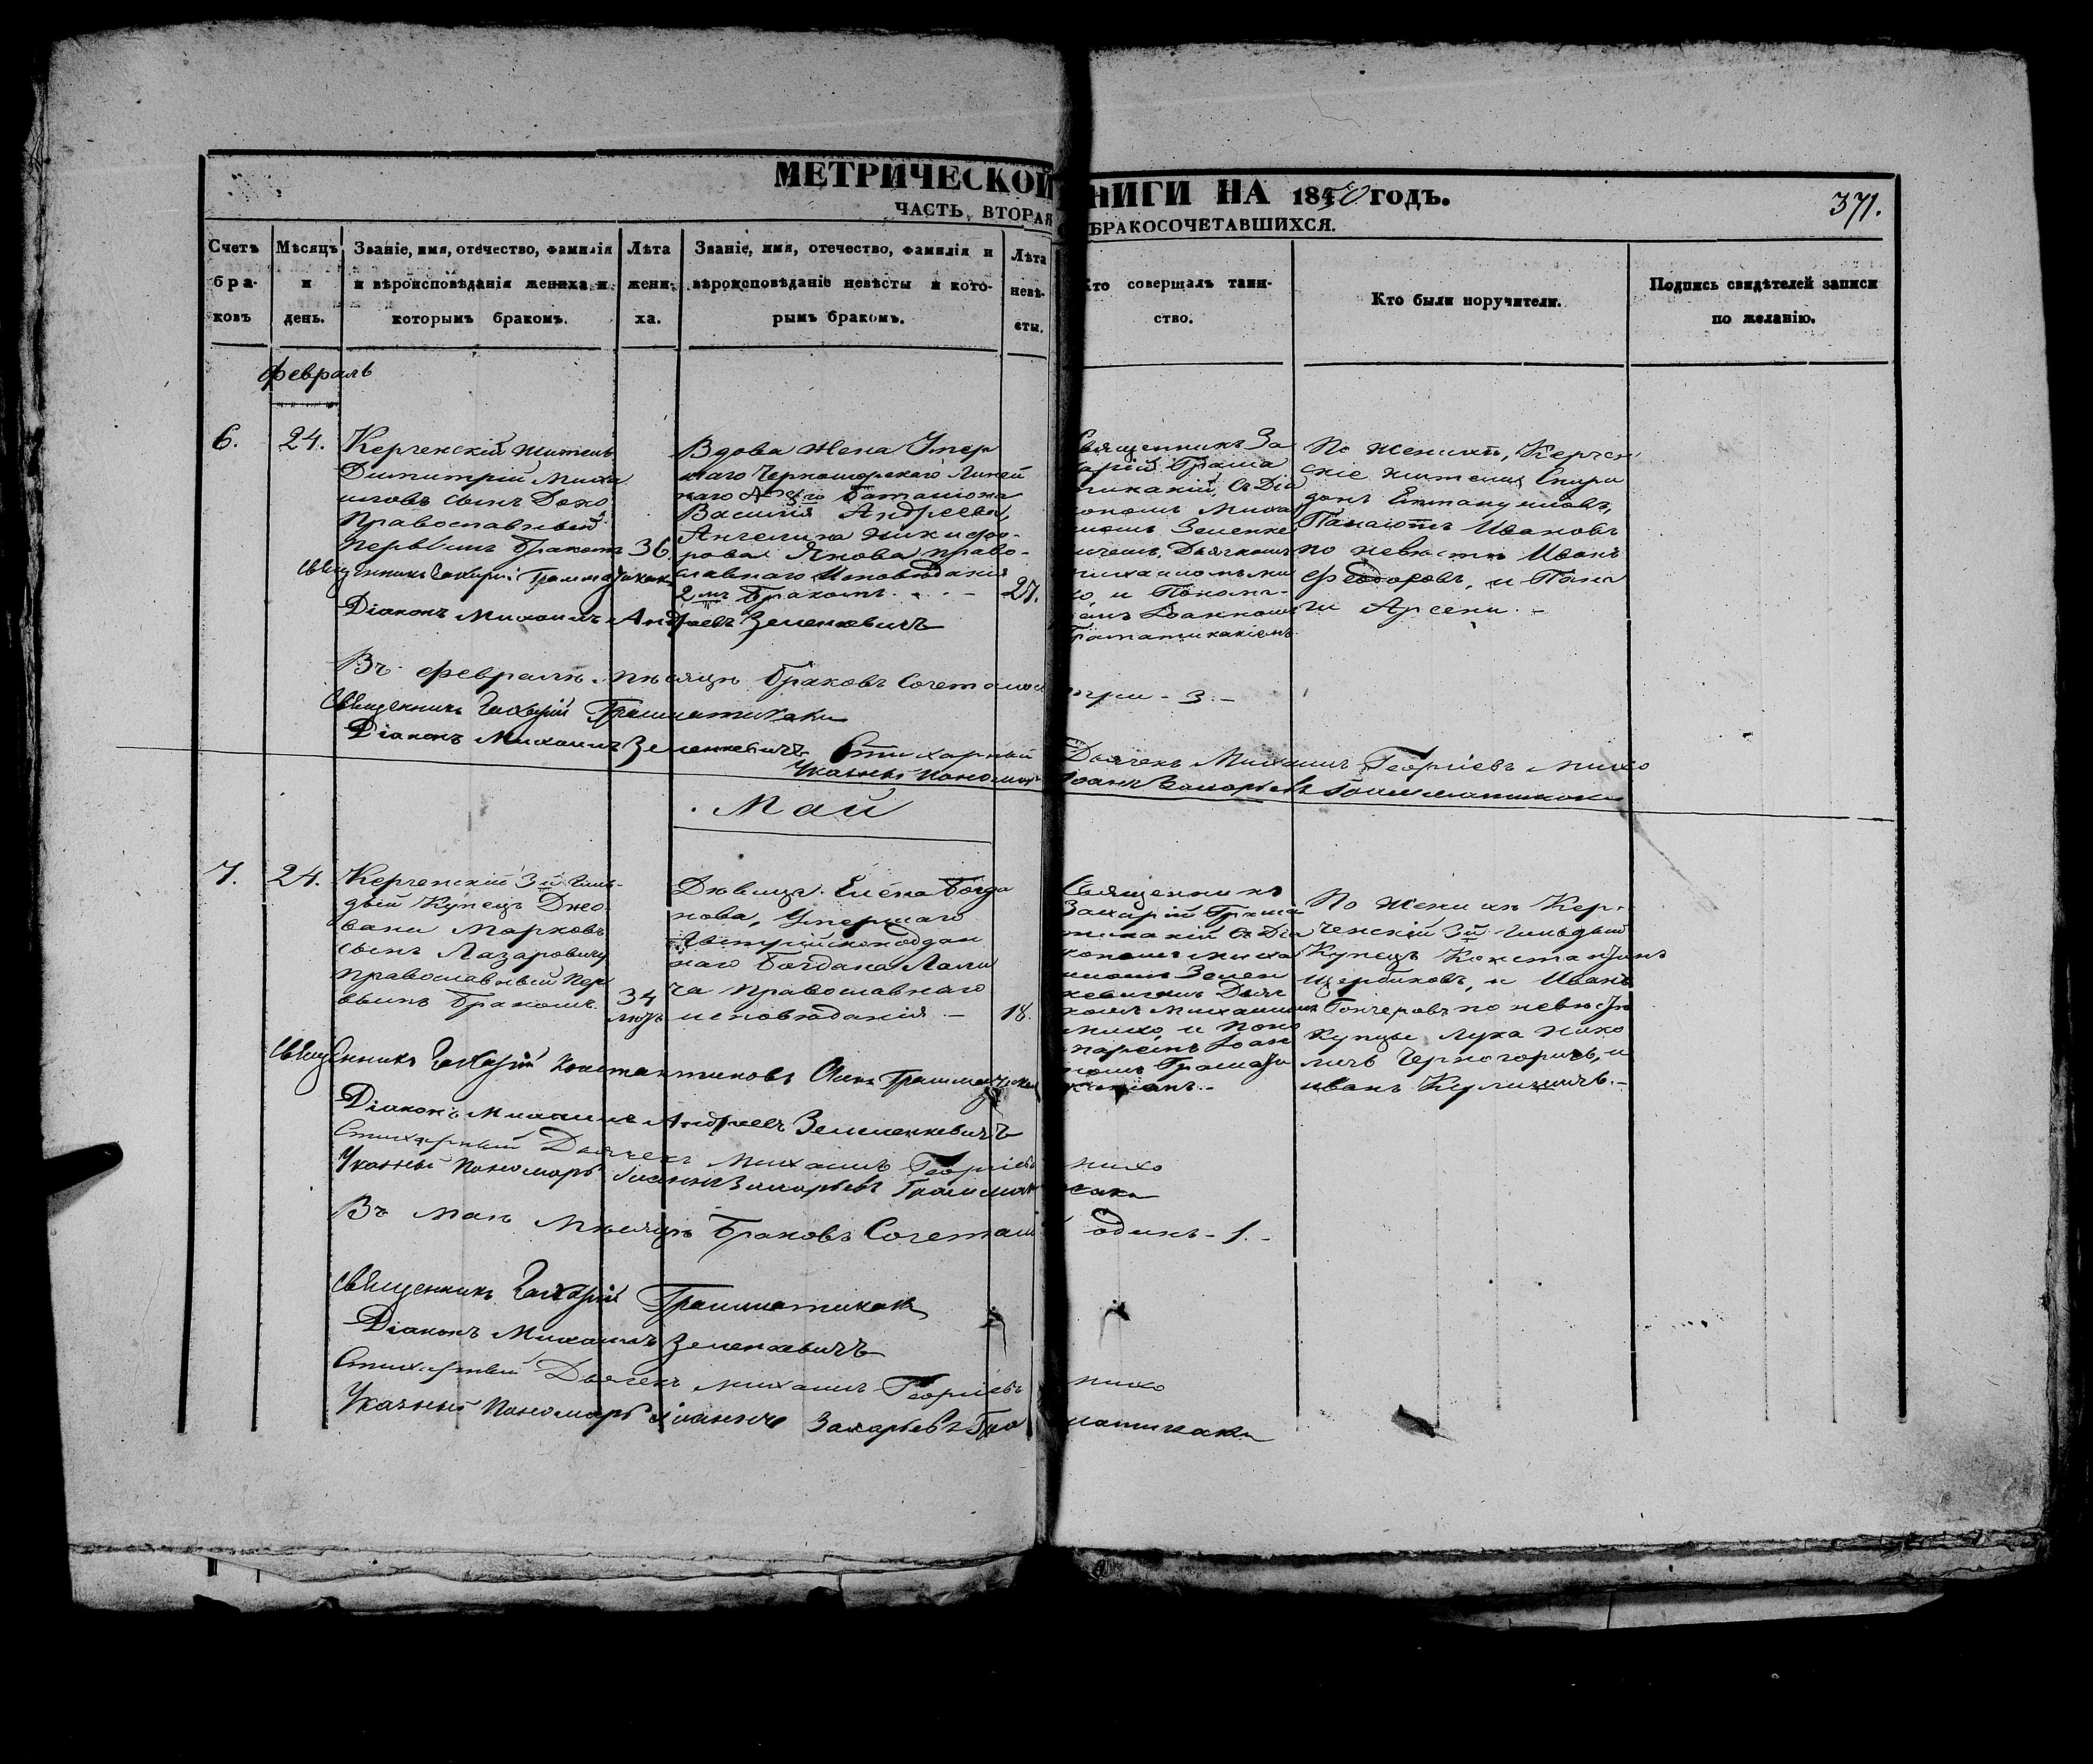 МЕТРИЧЕСКОЙ КНИГИ НА 1850 ГОДЪ.
371.
ЧАСТЬ ВТОРАЯ О БРАКОСОЧЕТАВШИХСЯ.
Счетъ бра-
ковъ
Мѣсяцъ
и
день.
Званіе, имя, отечество, фамилія
и вѣроисповѣданія жениха и
которымъ бракомъ.
Лѣта
жени-
ха.
Званіе, имя, отечество, фамилія и
вѣроисповѣданіе невѣсты и кото-
рымъ бракомъ.
Лѣта
невѣ-
сты.
Кто совершалъ таин-
ство.
Кто были поручители.
Подпись свидѣтелей записи
по желанію.
Февраль
6.
24.
Керченскій житель
Димитрій Миха
иловъ сынъ
Православный
первымъ бракомъ
36
Вдова жена Умер
шаго Черноморскаго Линей
наго № баталіона
Василія Андреева,
Ангелина Никифо-
рова Янова право-
славнаго Исповѣданія
2мъ бракомъ. -
27.
Священникъ За
харій Грама
тикакій, съ Діа
кономъ Миха
иломъ Зеленке
вичемъ, Дьячкомъ
Михаиломъ Ми
хо и Понома-
ремъ Іоанномъ
Граматикакіемъ
По женихѣ, Керчен
скіе жители Спири
донъ
Панаіотъ Ивановъ
по невѣстѣ Иванъ
Феодоровъ, и Пана
ги Арсени. -
Священникъ Захарій Грамматикаки
Діаконъ Михаилъ Андреевъ Зеленкевичъ
Въ февралѣ мѣсяцѣ браковъ Сочеталось три - 3. -
Священникъ Захарій Грамматикаки
Діаконъ Михаилъ Зеленкевичъ
Стихарный Дьячекъ Михаилъ Георгіевъ Михо
Указный Пономарь Іоаннъ Захарьевъ Грамматикаки
Май
7.
24.
Керченскій 3й гиль-
діи Купецъ Джо-
вани Марковъ
сынъ Лазаровичъ
православный пер
вымъ бракомъ.
34
лѣтъ
Дѣвица Елена Богда
нова, Умершаго
Австрійскоподдан
наго Богдана Лали
ча православнаго
исповѣданія -
18.
Священникъ
Захарій Грама
тикакій съ Діа
кономъ Миха
иломъ Зелен
кевичемъ Дьяч
комъ Михаиломъ
Михо и поно
маремъ Іоан
номъ Грамати
По женихѣ Кер-
ченскій 3й гильдіи
Купецъ Константинъ
Щербиковъ, и Иванъ
Гончеровъ по невѣстѣ
Купцы Лука Нико
личъ Черногоричъ, и
Иванъ Кулишичъ. -
Священникъ Захарій Константиновъ Сынъ Грамматикаки
Діаконъ Михаилъ Андреевъ Зеленкевичъ
Стихарный Дьячекъ Михаилъ Георгіевъ Михо
Указный Пономарь Іоаннъ Захарьевъ Грамматикаки
Въ маѣ мѣсяцѣ браковъ Сочетался одинъ - 1. -
Священникъ Захарій Грамматикаки
Діаконъ Михаилъ Зеленкевичъ
Стихарный Дьячекъ Михаилъ Георгіевъ Михо
Указный Пономарь Іоаннъ Захарьевъ Грамматикаки